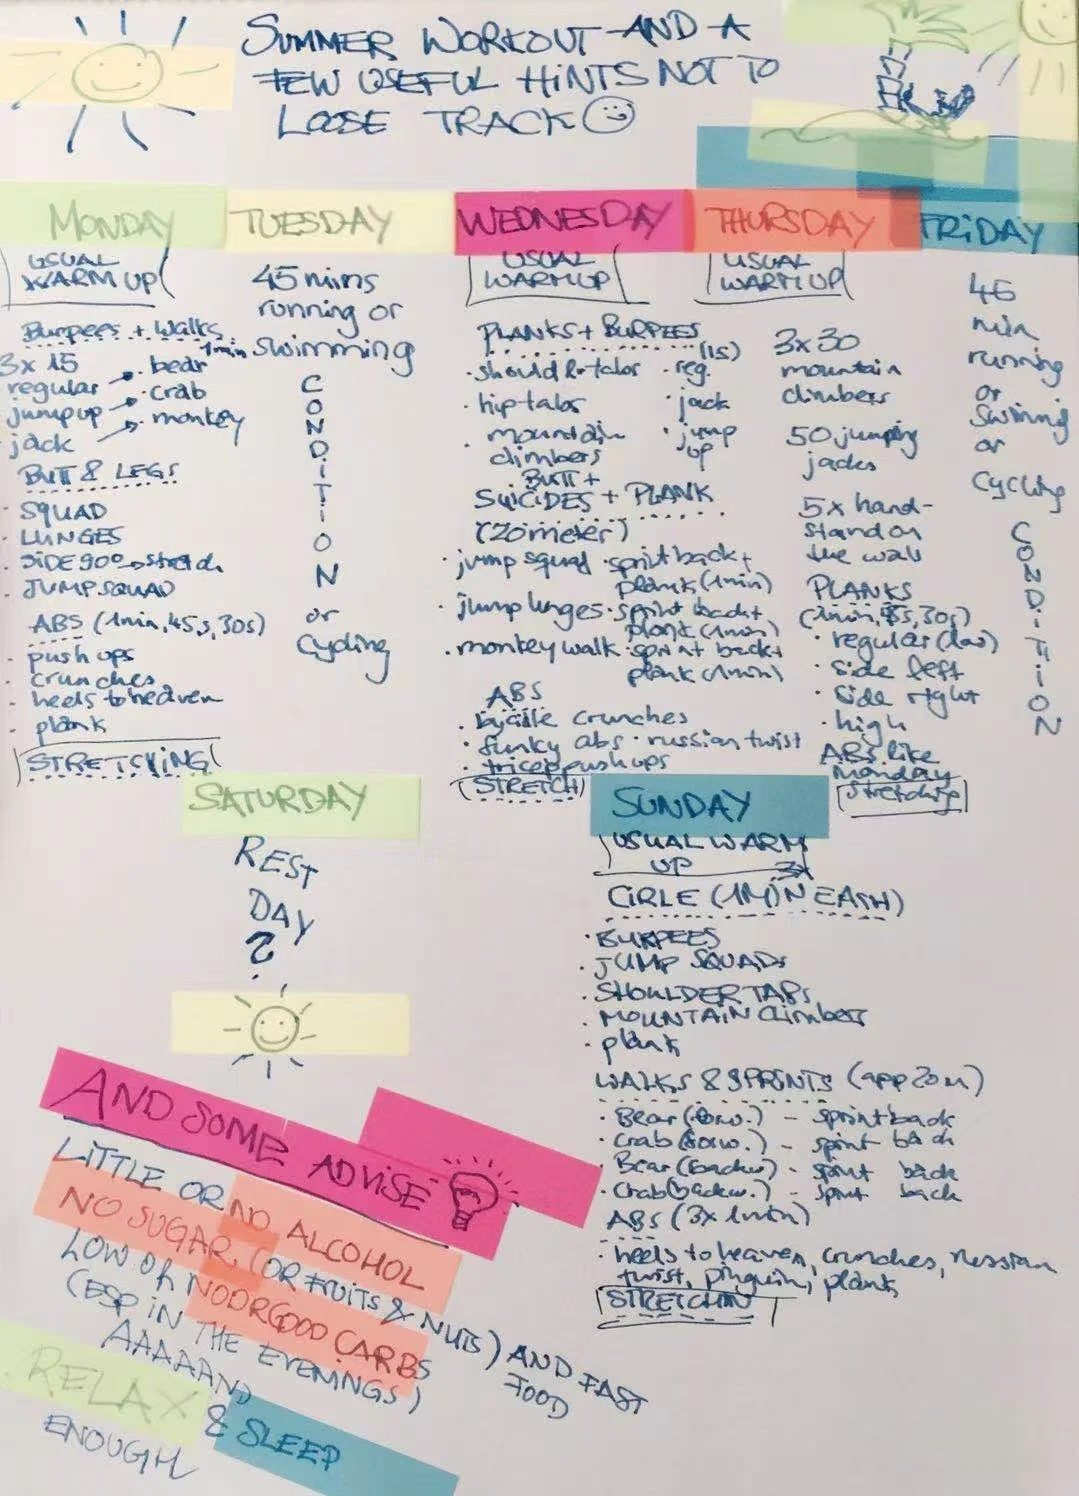 SUMMER WORKOUT AND A
FEW USEFUL HINTS NOT TO
LOOSE TRACK
MONDAY
USUAL
WARM UP
Burpees + Walks
1min
3x 15
regular
jump up
jack
bear
crab
monkey
BUTT & LEGS
SQUAD
LUNGES
SIDE 90° stretch
JUMP SQUAD
ABS (1min, 45s, 30s)
push ups
crunches
heels to heaven
plank
STRETCHING
TUESDAY
45 mins
running or
swimming
CONDITION
or
cycling
WEDNESDAY
USUAL
WARM UP
PLANKS + BURPEES
(15)
shoulder tabs
hip tabs
mountain
climbers
reg.
jack
jump
up
BUTT +
SUICIDES + PLANK
(20 meter)
jump squad · sprint back +
plank (1min)
jump lunges · sprint back +
plank (1min)
monkey walk · sprint back +
plank (1min)
ABS
bycicle crunches
funky abs · russian twist
tricep push ups
STRETCH
THURSDAY
USUAL
WARM UP
3x30
mountain
climbers
50 jumping
jacks
5x hand-
stand on
the wall
PLANKS
(1min, 45s, 30s)
regular (low)
side left
side right
high
ABS like
Monday
stretching
FRIDAY
45
min
running
or
Swimming
or
Cycling
CONDITION
SATURDAY
REST
DAY
?
SUNDAY
USUAL WARM
UP
3x
CIRLE (1MIN EACH)
BURPEES
JUMP SQUADS
SHOULDER TAPS
MOUNTAIN Climbers
plank
WALKS & SPRINTS (app 20m)
Bear - sprint back
Crab - sprint back
Bear - sprint back
Crab (backw.) - sprint back
ABS (3x 1min)
heels to heaven, crunches, Russian
twist, pinguin, plank
STRETCHIN
AND SOME ADVISE
LITTLE OR NO ALCOHOL
NO SUGAR (OR FRUITS & NUTS) AND FAST
FOOD
LOW OR CARBS
(ESP IN THE EVENINGS)
AAAAAND
RELAX & SLEEP
ENOUGH